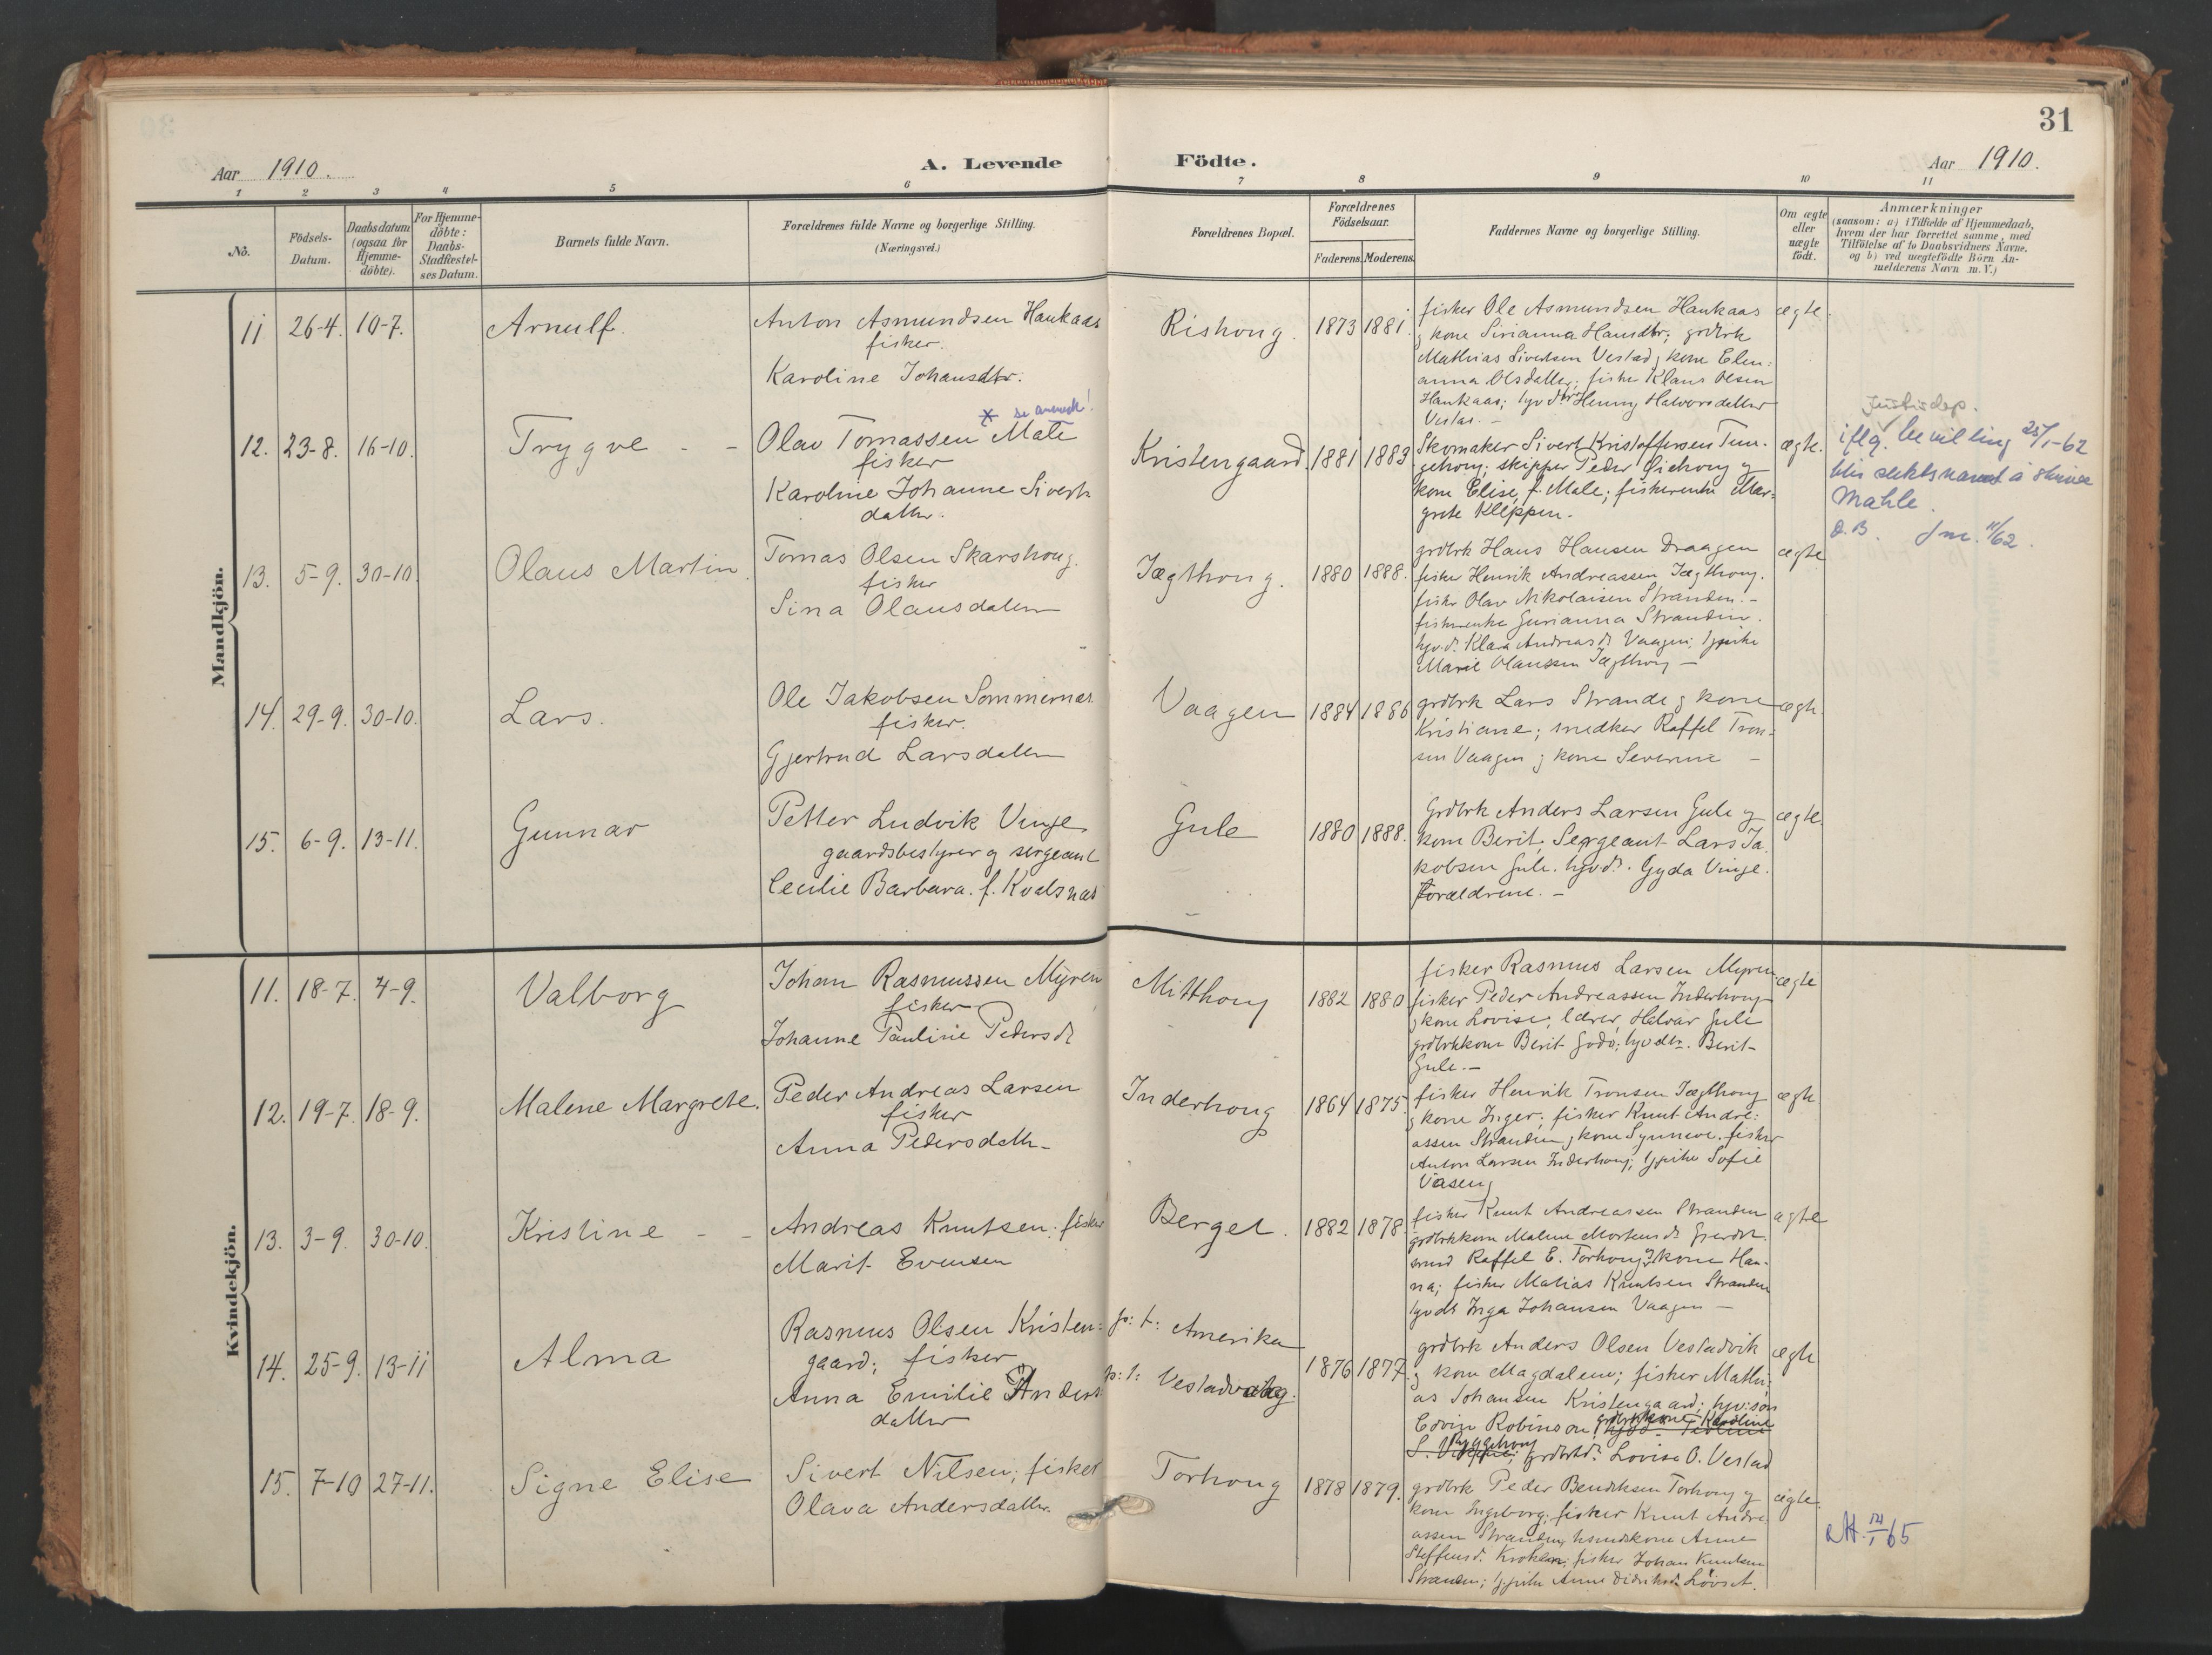 31
Aar 1910.
A. Levende
Födte.
Aar 1910.
1 2 3 4 5 6 7 8 9 10 11
No.
Födsels-
Datum.
Daabsdatum
(ogsaa for
Hjemme-
döbte).
For Hjemme-
döbte:
Daabs-
Stadfæstel-
ses Datum.
Barnets fulde Navn.
Forældrenes fulde Navne og borgerlige Stilling.
(Næringsvei.)
Forældrenes Bopæl.
Forældrenes
Födselsaar.
Faderens. Moderens.
Faddernes Navne og borgerlige Stilling.
Om ægte
eller
uægte
födt.
Anmærkninger
(saasom: a) i Tilfælde af Hjemmedaab,
hvem der har forrettet samme, med
Tilföielse af to Daabsvidners Navne.
og b) ved uægtefödte Börn An-
melderens Navn m.V.)
Mandkjön.
11 26-4. 10-7. Arnulf.
Anton Asmundsen Haukaas
fisker.
Karoline Johansdtr.
Rishoug. 1873 1881.
fisker Ole Asmundsen Haukaas
g kone Sirianna Hansdtr; grdbrk
Mathias Sivertsen Vestad g kone Elen:
anna Olsdatter; fisker Klaus Olsen
Haukaas; Henny Halvorsdatter
Vestas. -
ægte.
12. 23-8. 16-10. Trygve - -
* se anmerk!
Olav Tomassen Male
fisker
Karoline Johanne Siverts
datter.
Kristengaard. 1881 1883
Skomaker Sivert Kristoffersen Tun-
gehoug; skipper Peder
kone Elise, f. Male; fiskerenke Mar-
grete Kleppen.
ægte.
Justisdep.
iflg. bevilling 25/1-62
blir slektsnavnet å skrive
Mahle.
D.B.
13. 5-9. 30-10 Olaus Martin.
Tomas Olsen Skarshoug.
fisker
Sina Olausdatter
Jægthoug. 1880 1888.
grdbrk Hans Hansen Draagen
fisker Henrik Andreassen Jægthoug.
fisker Olav Nikolaisen Stranden. -
fiskerenke Gurianna Stranden.
Klara Andreasdr Vaagen; pike
Marie Olaussen Jægthoug -
ægte
14. 29-9. 30-10. Lars.
Ole Jakobsen Sommernes
fisker.
Gjertrud Larsdatter
Vaagen 1884 1886
grdbrk Lars Strande g kone
Kristiane; snedker Raffel Tron-
sen Vaagen g kone Severine -
ægte.
15. 6-9. 13-11. Gunnar
Petter Ludvik Vinje
gaardsbestyrer og sergeant
Cecilie Barbara. f. Kvalsnes
Gule 1880 1888.
Grdbrk Anders Larsen Gule og
kone Berit, Sergeant Lars Ja-
kobsen Gule. Gyda Vinje.
Forældrene. -
ægte.
Kvindekjön.
11. 18-7. 4-9. Valborg
Johan Rasmussen Myren
fisker
Johanne Pauline Pedersdr
Mitthoug 1882 1880
fisker Rasmus Larsen Myren
fisker Peder Andreassen Inderhoug
g kone Lovise; lærer Halvar Gule
grdbrkkone Berit Godø; Berit
Gule. -
ægte
12. 19-7. 18-9. Malene Margrete.
Peder Andreas Larsen
fisker
Anna Pedersdatter
Inderhoug 1864 1875.
fisker Henrik Tronsen Jægthoug
g kone Inger; fisker Knut Andre:
assen Stranden g kone Synnøve. fisker
Anton Larsen Inderhoug; pike Sofie
Vaseng
ægte
13. 3-9. 30-10. Kristine - -
Andreas Knutsen. fisker
Marit Evensen
Berget. 1882 1878.
fisker Knut Andreassen Stranden
grdbrkkone Malene Mortensdr
Raffel E. Torhoug g kone Han-
na; fisker Matias Knutsen Stranden
Inga Johansen Vaagen -
ægte
14. 25-9. 13-11 Alma
Rasmus Olsen Kristen:
gaard; fisker
Anna Emilie Anders
datter
p: t: Amerika
p: t: Vestadvaag.
1876 1877
grdbrk Anders Olsen Vestadvik
g kone Magdalene; fisker Mathi:
as Johansen Kristengaard;
Edvin Robinson; grdbrkkone Karoline
Tyggehoug Lovise O. Vestad
ægte
15. 7-10 27-11. Signe Elise
Sivert Nilsen; fisker
Olava Andersdatter.
Torhoug 1878 1879.
grdbrk Peder Bendiksen Torhoug og
kone Ingeborg; fisker Knut Andre:
assen Stranden, Anne
Steffensd. fisker Johan Knutsen
Stranden; pike Anne Løvset.
ægte.
12/1 65